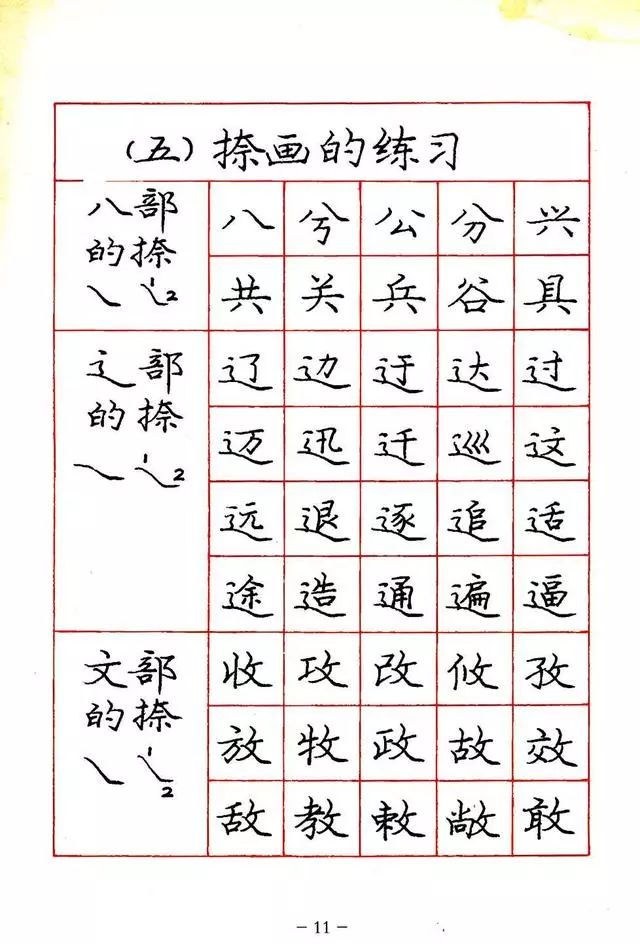 （五）捺画的练习
八部
的捺
㇏ 1 2
八 兮 公 分 兴
共 关 兵 谷 具
辶部
的捺
㇏ 1 2
辽 边 迂 达 过
迈 迅 迁 巡 这
远 退 逐 追 适
途 造 通 遍 逼
攵部
的捺
㇏ 1 2
收 攻 改 攸 孜
放 牧 政 故 效
敌 教 敕 敞 敢
- 11 -